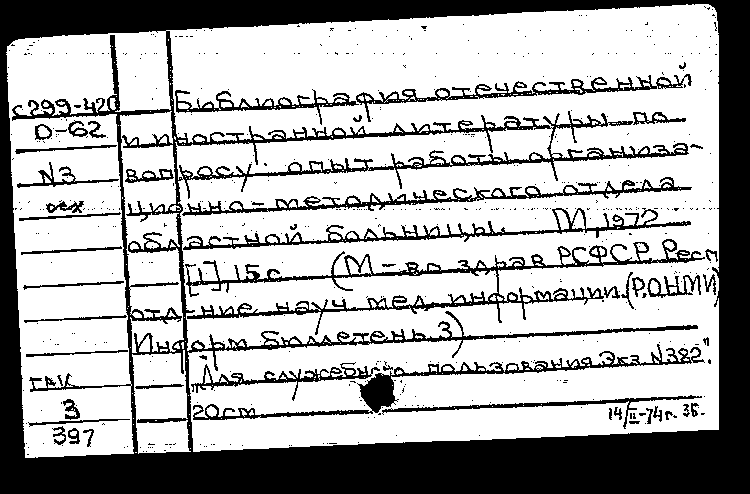 с299-420 Библиография отечественной
О-62 и иностранной литературы по
N3 вопросу: опыт работы организа-
ционно-методического отдела
областной больницы. М, 197
[1], 15 с (М-во здрав РСФСР. Респ
отд-ние науч. мед. информации. (РОНМИ)
Информ бюллетень 3)
ГАК „Для служебного пользования Экз N382".
3 20 cm
397 14/II-74г. 35.